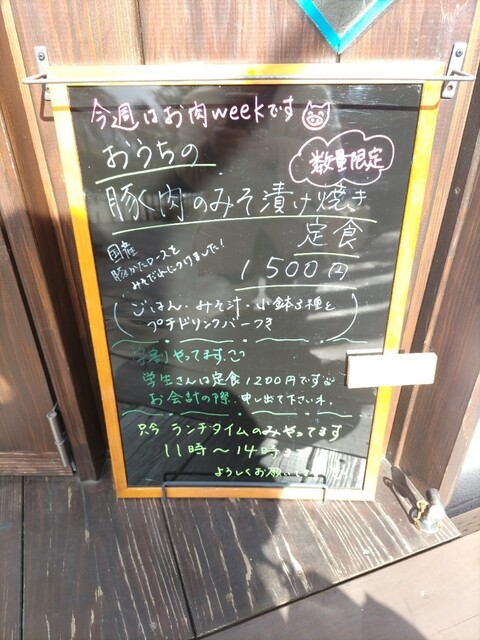 今週はお肉weekです
おうちの
数量限定
豚肉のみそ漬け焼き
定食
国産
豚かたロースを
みそだれにつけました!
1500円
(ごはん・みそ汁・小鉢3種と
プチドリンクバーつき)
学割やってます
学生さんは定食1200円です
お会計の際、申し出て下さいネ。
只今 ランチタイムのみやってます
11時〜14時まで
よろしくお願いします